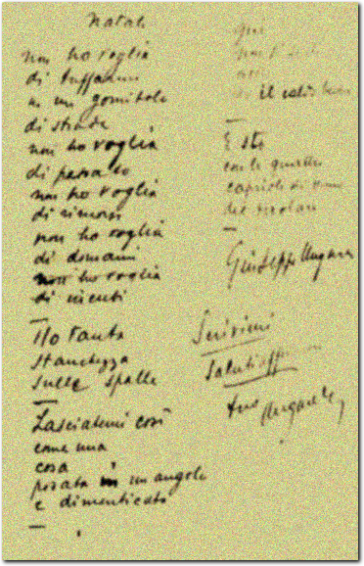 Natale
non ho voglia
di tuffarmi
in un gomitolo
di strade
non ho voglia
di
non ho voglia
di rimorsi
non ho voglia
di domani
non ho voglia
di nienti
—
Ho tanta
stanchezza
sulle spalle
—
Lasciatemi così
come una
cosa
posata in un angolo
e dimenticata
—
Qui
non si sente
il caldo buono
—
E sto
con le quattro
capriole di fumo
del focolare
—
Giuseppe Ungaretti
Scrivimi
Saluti affettuosi
tuo Ungaretti